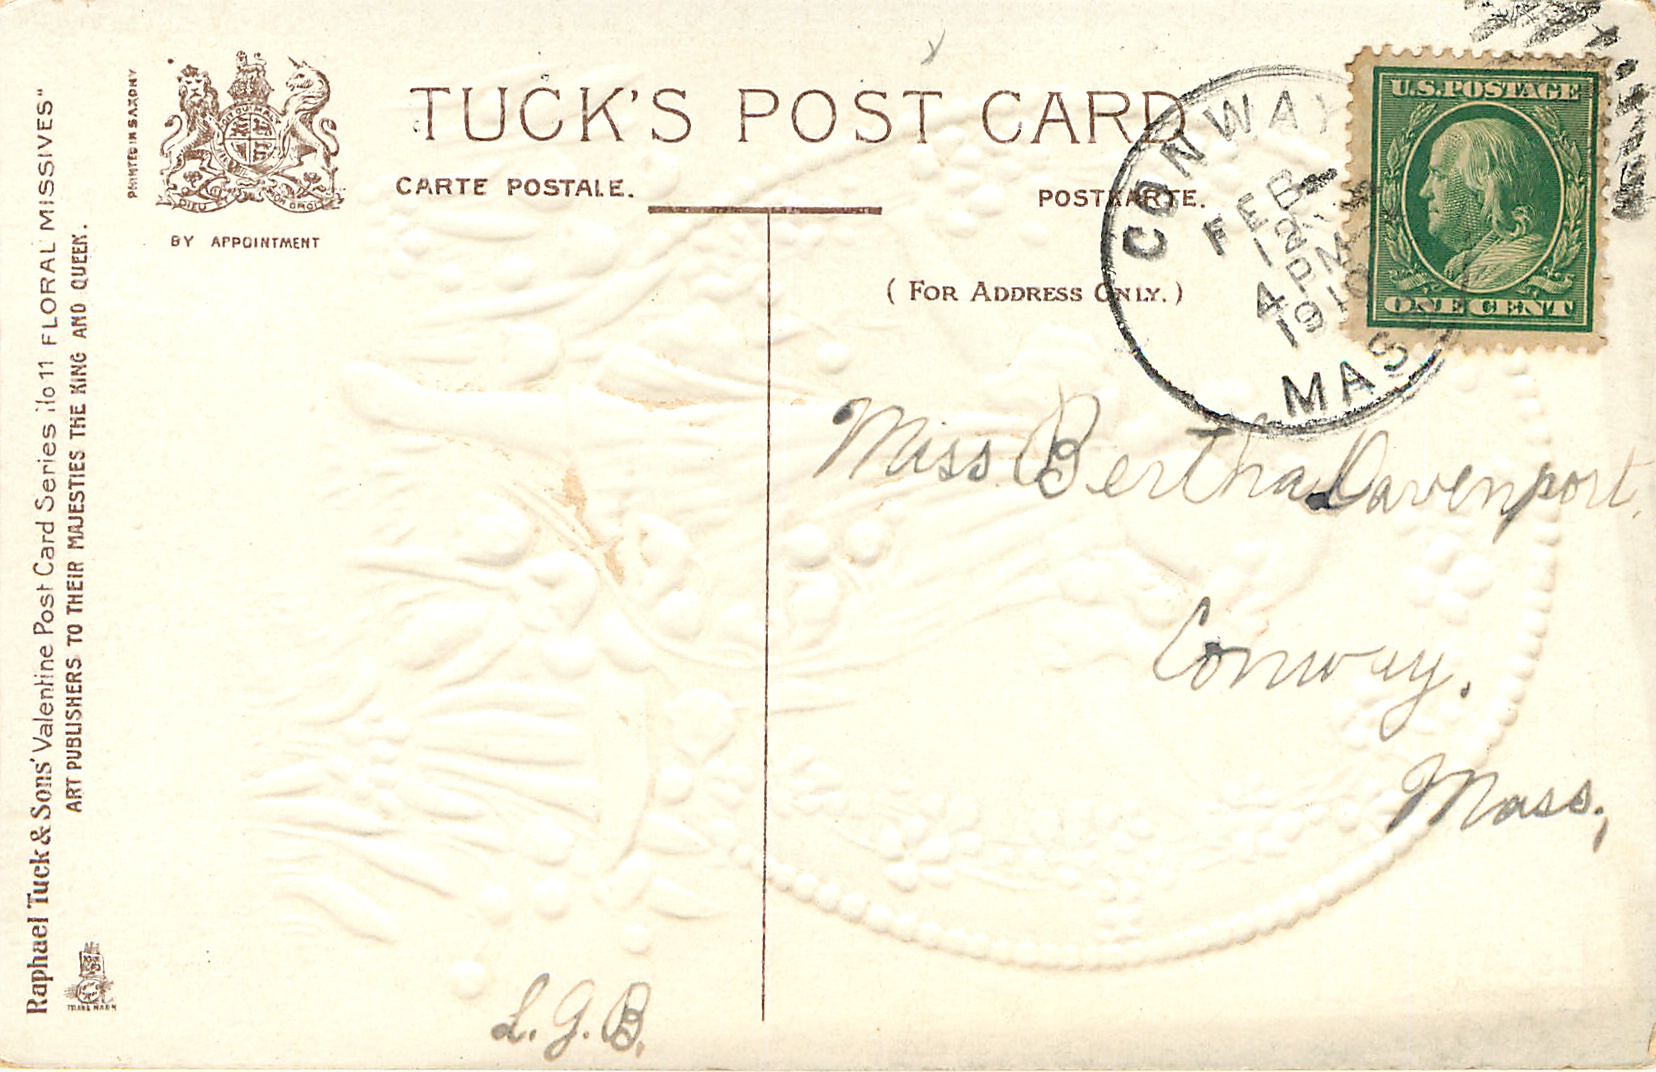 Raphael Tuck & Sons' Valentine Post Card Series No 11 FLORAL MISSIVES"
ART PUBLISHERS TO THEIR MAJESTIES THE KING AND QUEEN.
TRADE MARK
PRINTED IN SAXONY
DIEU ET MON DROIT
BY APPOINTMENT
TUCK'S POST CARD
CARTE POSTALE.
POSTKARTE.
(FOR ADDRESS ONLY.)
CONWAY
FEB
12
4 PM
1910
MASS
U.S. POSTAGE
ONE CENT
Miss Bertha Davenport.
Conway.
Mass.,
L. G. B.